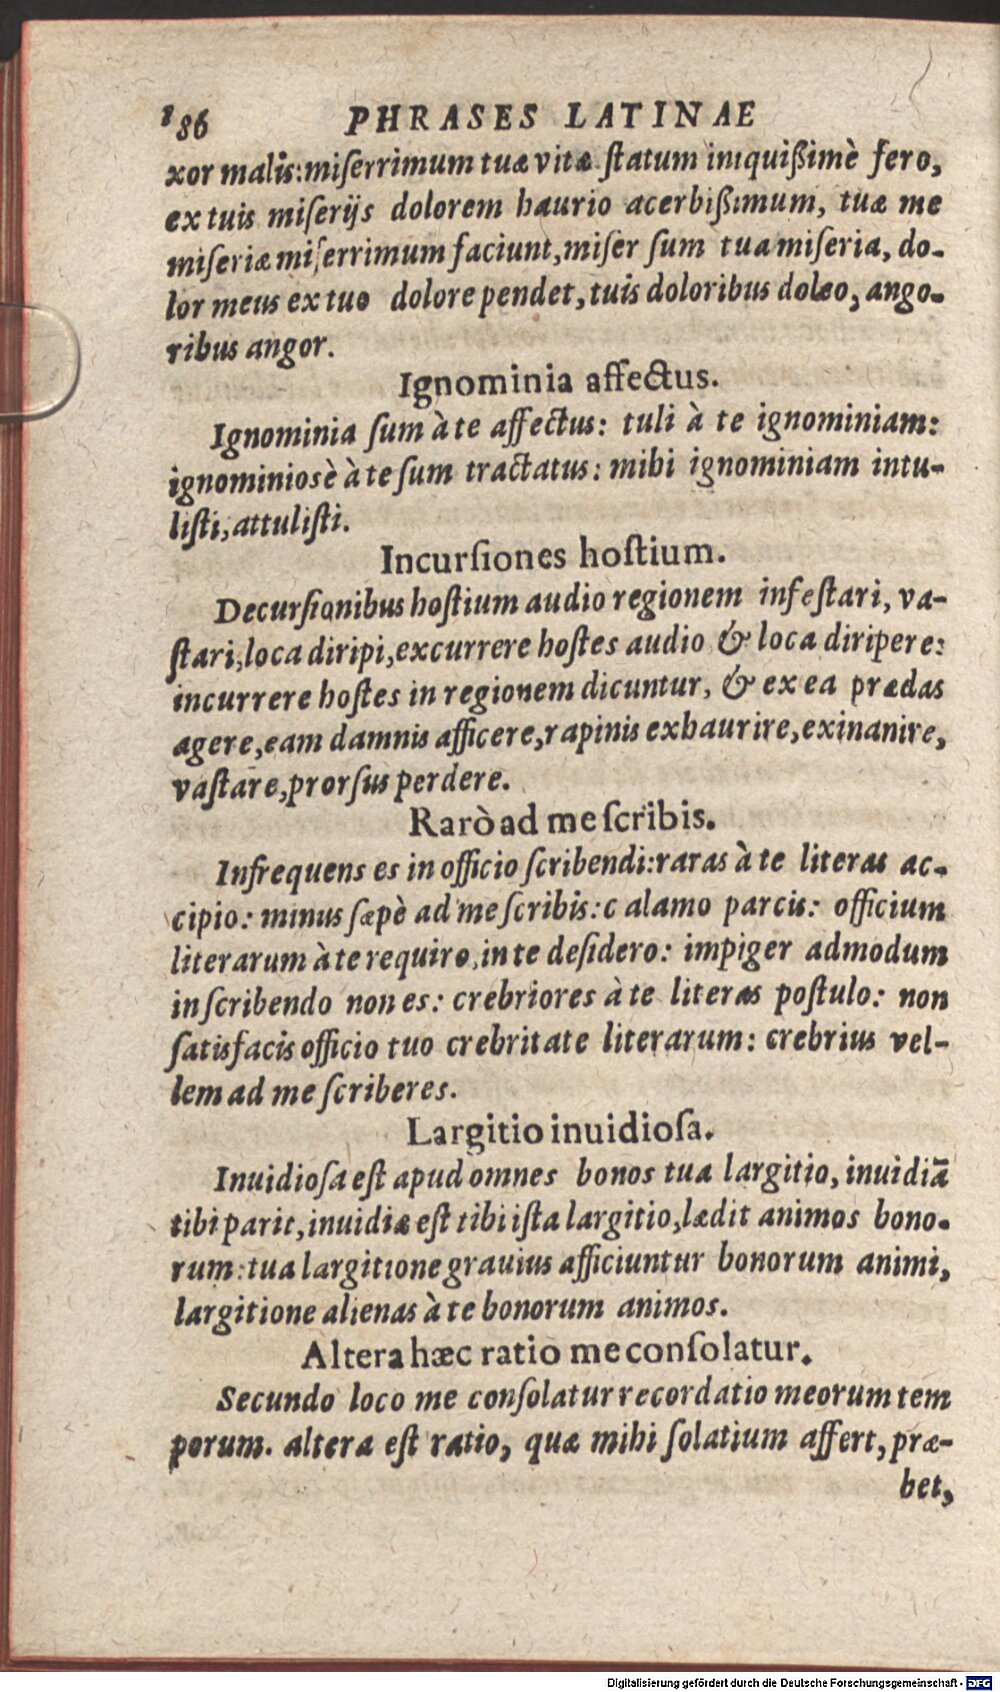 186 PHRASES LATINAE
xor malis: miſerrimum tuæ vitæ ſtatum iniquißimè fero,
ex tuis miſerijs dolorem haurio acerbißimum, tuæ me
miſeriæ miſerrimum faciunt, miſer ſum tua miſeria, do-
lor meus ex tuo dolore pendet, tuis doloribus doleo, ango-
ribus angor.
Ignominia affectus.
Ignominia ſum à te affectus: tuli à te ignominiam:
ignominiosè à te ſum tractatus: mihi ignominiam intu-
liſti, attuliſti.
Incurſiones hoſtium.
Decurſionibus hoſtium audio regionem infeſtari, va-
ſtari, loca diripi, excurrere hoſtes audio & loca diripere:
incurrere hoſtes in regionem dicuntur, & ex ea prædas
agere, eam damnis afficere, rapinis exhaurire, exinanire,
vaſtare, prorſus perdere.
Rarò ad me ſcribis.
Infrequens es in officio ſcribendi: raras à te literas ac-
cipio: minus ſæpè ad me ſcribis: c alamo parcis: officium
literarum à te requiro, in te deſidero: impiger admodum
in ſcribendo non es: crebriores à te literas poſtulo: non
ſatisfacis officio tuo crebritate literarum: crebrius vel-
lem ad me ſcriberes.
Largitio inuidioſa.
Inuidioſa eſt apud omnes bonos tua largitio, inuidiā
tibi parit, inuidiæ eſt tibi iſta largitio, lædit animos bono-
rum: tua largitione grauius afficiuntur bonorum animi,
largitione alienas à te bonorum animos.
Altera hæc ratio me conſolatur.
Secundo loco me conſolatur recordatio meorum tem
porum. altera eſt ratio, quæ mihi ſolatium affert, præ-
bet,
Digitalisierung gefördert durch die Deutsche Forschungsgemeinschaft - DFG